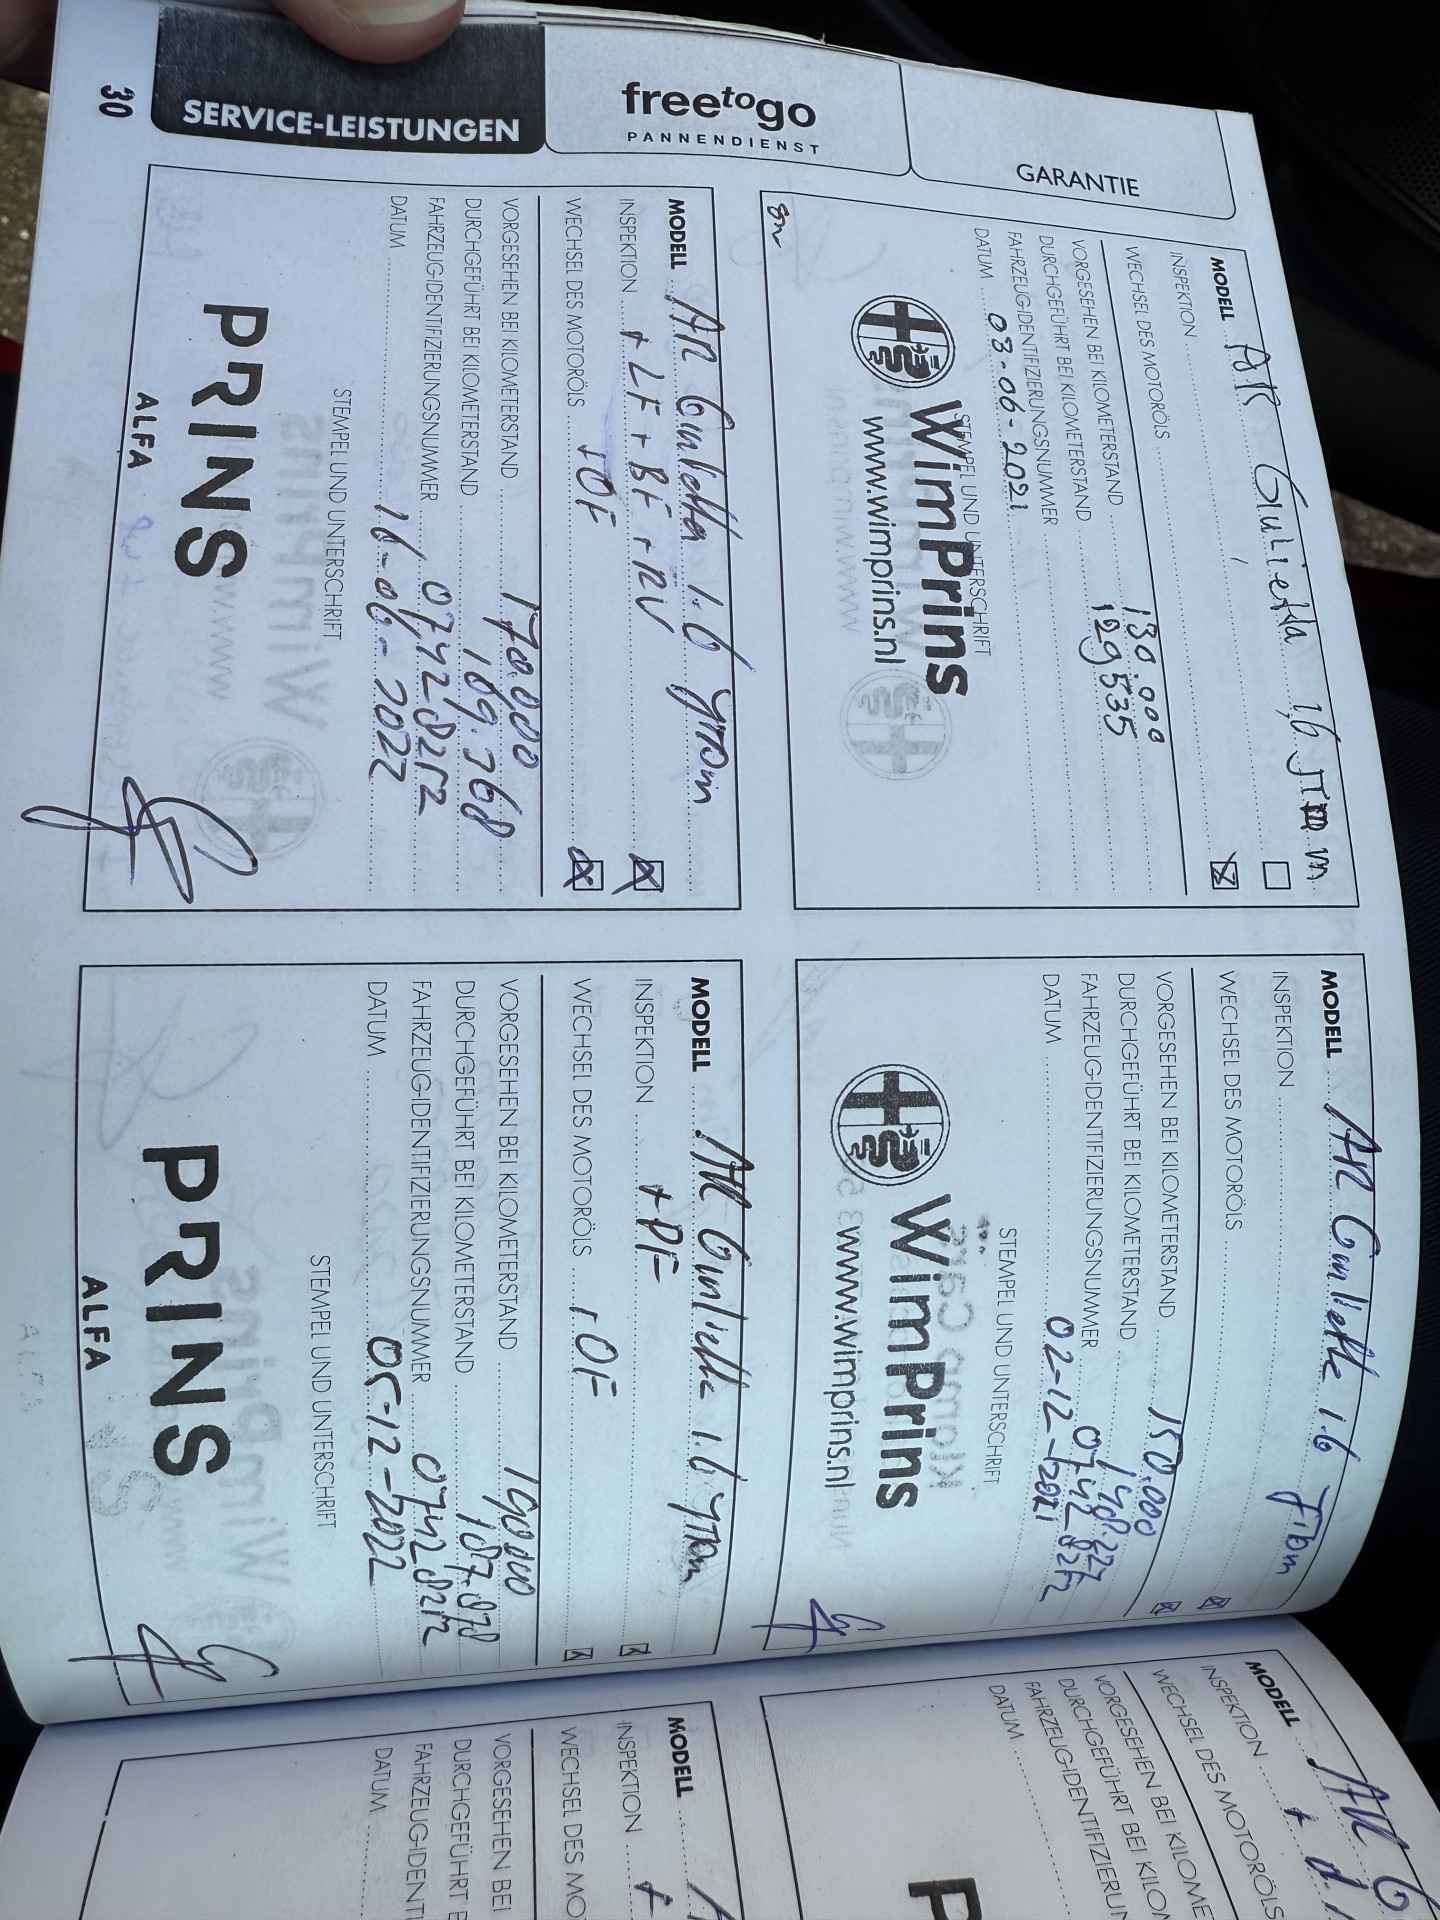 30
SERVICE-LEISTUNGEN
freetogo
PANNENDIENST
GARANTIE
MODELL AR Giulietta 1,6 JTDm
INSPEKTION
WECHSEL DES MOTORÖLS
VORGESEHEN BEI KILOMETERSTAND 130.000
DURCHGEFÜHRT BEI KILOMETERSTAND 129535
FAHRZEUG-IDENTIFIZIERUNGSNUMMER
DATUM 03-06-2021
STEMPEL UND UNTERSCHRIFT
WimPrins
www.wimprins.nl
MODELL AR Giulietta 1.6 JTDm
INSPEKTION
WECHSEL DES MOTORÖLS
VORGESEHEN BEI KILOMETERSTAND 150.000
DURCHGEFÜHRT BEI KILOMETERSTAND 148.227
FAHRZEUG-IDENTIFIZIERUNGSNUMMER
DATUM 02-12-2021
STEMPEL UND UNTERSCHRIFT
WimPrins
www.wimprins.nl
MODELL AR Giulietta 1.6 JTDm
INSPEKTION + LF + BF + RV
WECHSEL DES MOTORÖLS + OF
VORGESEHEN BEI KILOMETERSTAND 170.000
DURCHGEFÜHRT BEI KILOMETERSTAND 169.368
FAHRZEUG-IDENTIFIZIERUNGSNUMMER
DATUM
STEMPEL UND UNTERSCHRIFT
PRINS
ALFA
MODELL AR Giulietta 1.6 JTDm
INSPEKTION
WECHSEL DES MOTORÖLS + OF
VORGESEHEN BEI KILOMETERSTAND 190000
DURCHGEFÜHRT BEI KILOMETERSTAND 187.878
FAHRZEUG-IDENTIFIZIERUNGSNUMMER
DATUM 05-12-2022
STEMPEL UND UNTERSCHRIFT
PRINS
ALFA
MODELL AR G
INSPEKTION +
WECHSEL DES MOTORÖLS
VORGESEHEN BEI KILOME
DURCHGEFÜHRT BEI KILO
FAHRZEUG-IDENTIFIZIERUN
DATUM
P
MODELL
INSPEKTION +
WECHSEL DES MO
VORGESEHEN BEI
DURCHGEFÜHRT
FAHRZEUG-IDENTI
DATUM